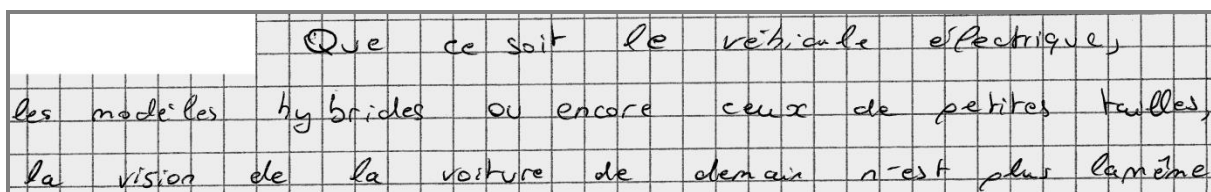 Que ce soit le véhicule électrique,
les modèles hybrides ou encore ceux de petites tailles,
la vision de la voiture de demain n'est plus la même